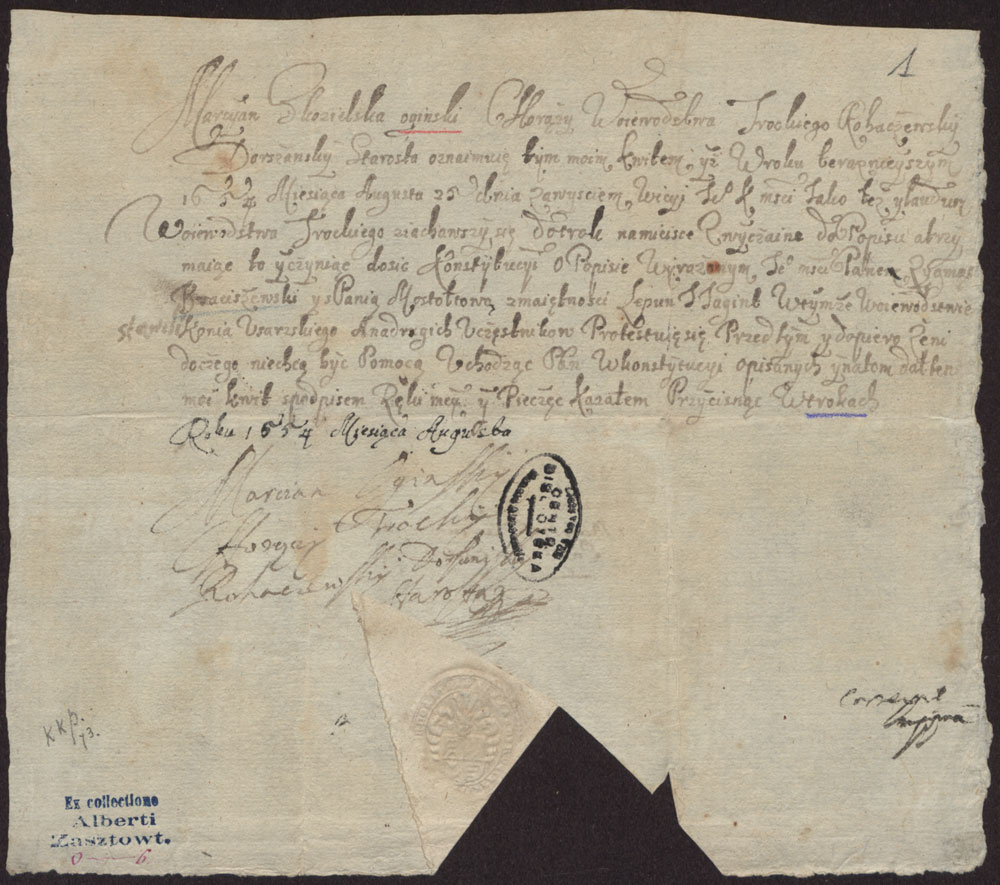 1
Marcyan Skozielska oginski Chorąży Woiewodstwa Trockiego Rohaczewsky
Dorszansky Starosta oznaimuię tym moim kwitem yż Wroku teraznieyszym
1654 Miesiąca Augusta 25 dnia zawysciem Wicyi Je K mści Jako też y laudum
Woiewodstwa Trockiego ziachawszy się do trok namieisce Zwyczaine do Popisu
maiąc to yczyniąc dosic Konstytucyi O Popisie Wyrazonym Je mści Pan
Braciszewski y s Panią Mostoltową zmaiętnosci Lepun J Jagint Wtymże Woiewodstwie
stawili Konia Usarskiego Anadrugich Uczęstnikow Protestuię się Przedtym y dopiero
doczego niechcą być Pomocą Uchodząc Wkonstytucyi opisanych ynatom dał ten
moi kwit spodpisem Ręki mey y Pieczęc Kazałem Przycisnąc Wtrokach
Roku 1654 Miesiąca Augusta
Marcian Oginskiy
Horązy Trockiy
Rohaczewskiy
Starosta
KKp. 73.
Ex collectione
Alberti
Zasztowt.